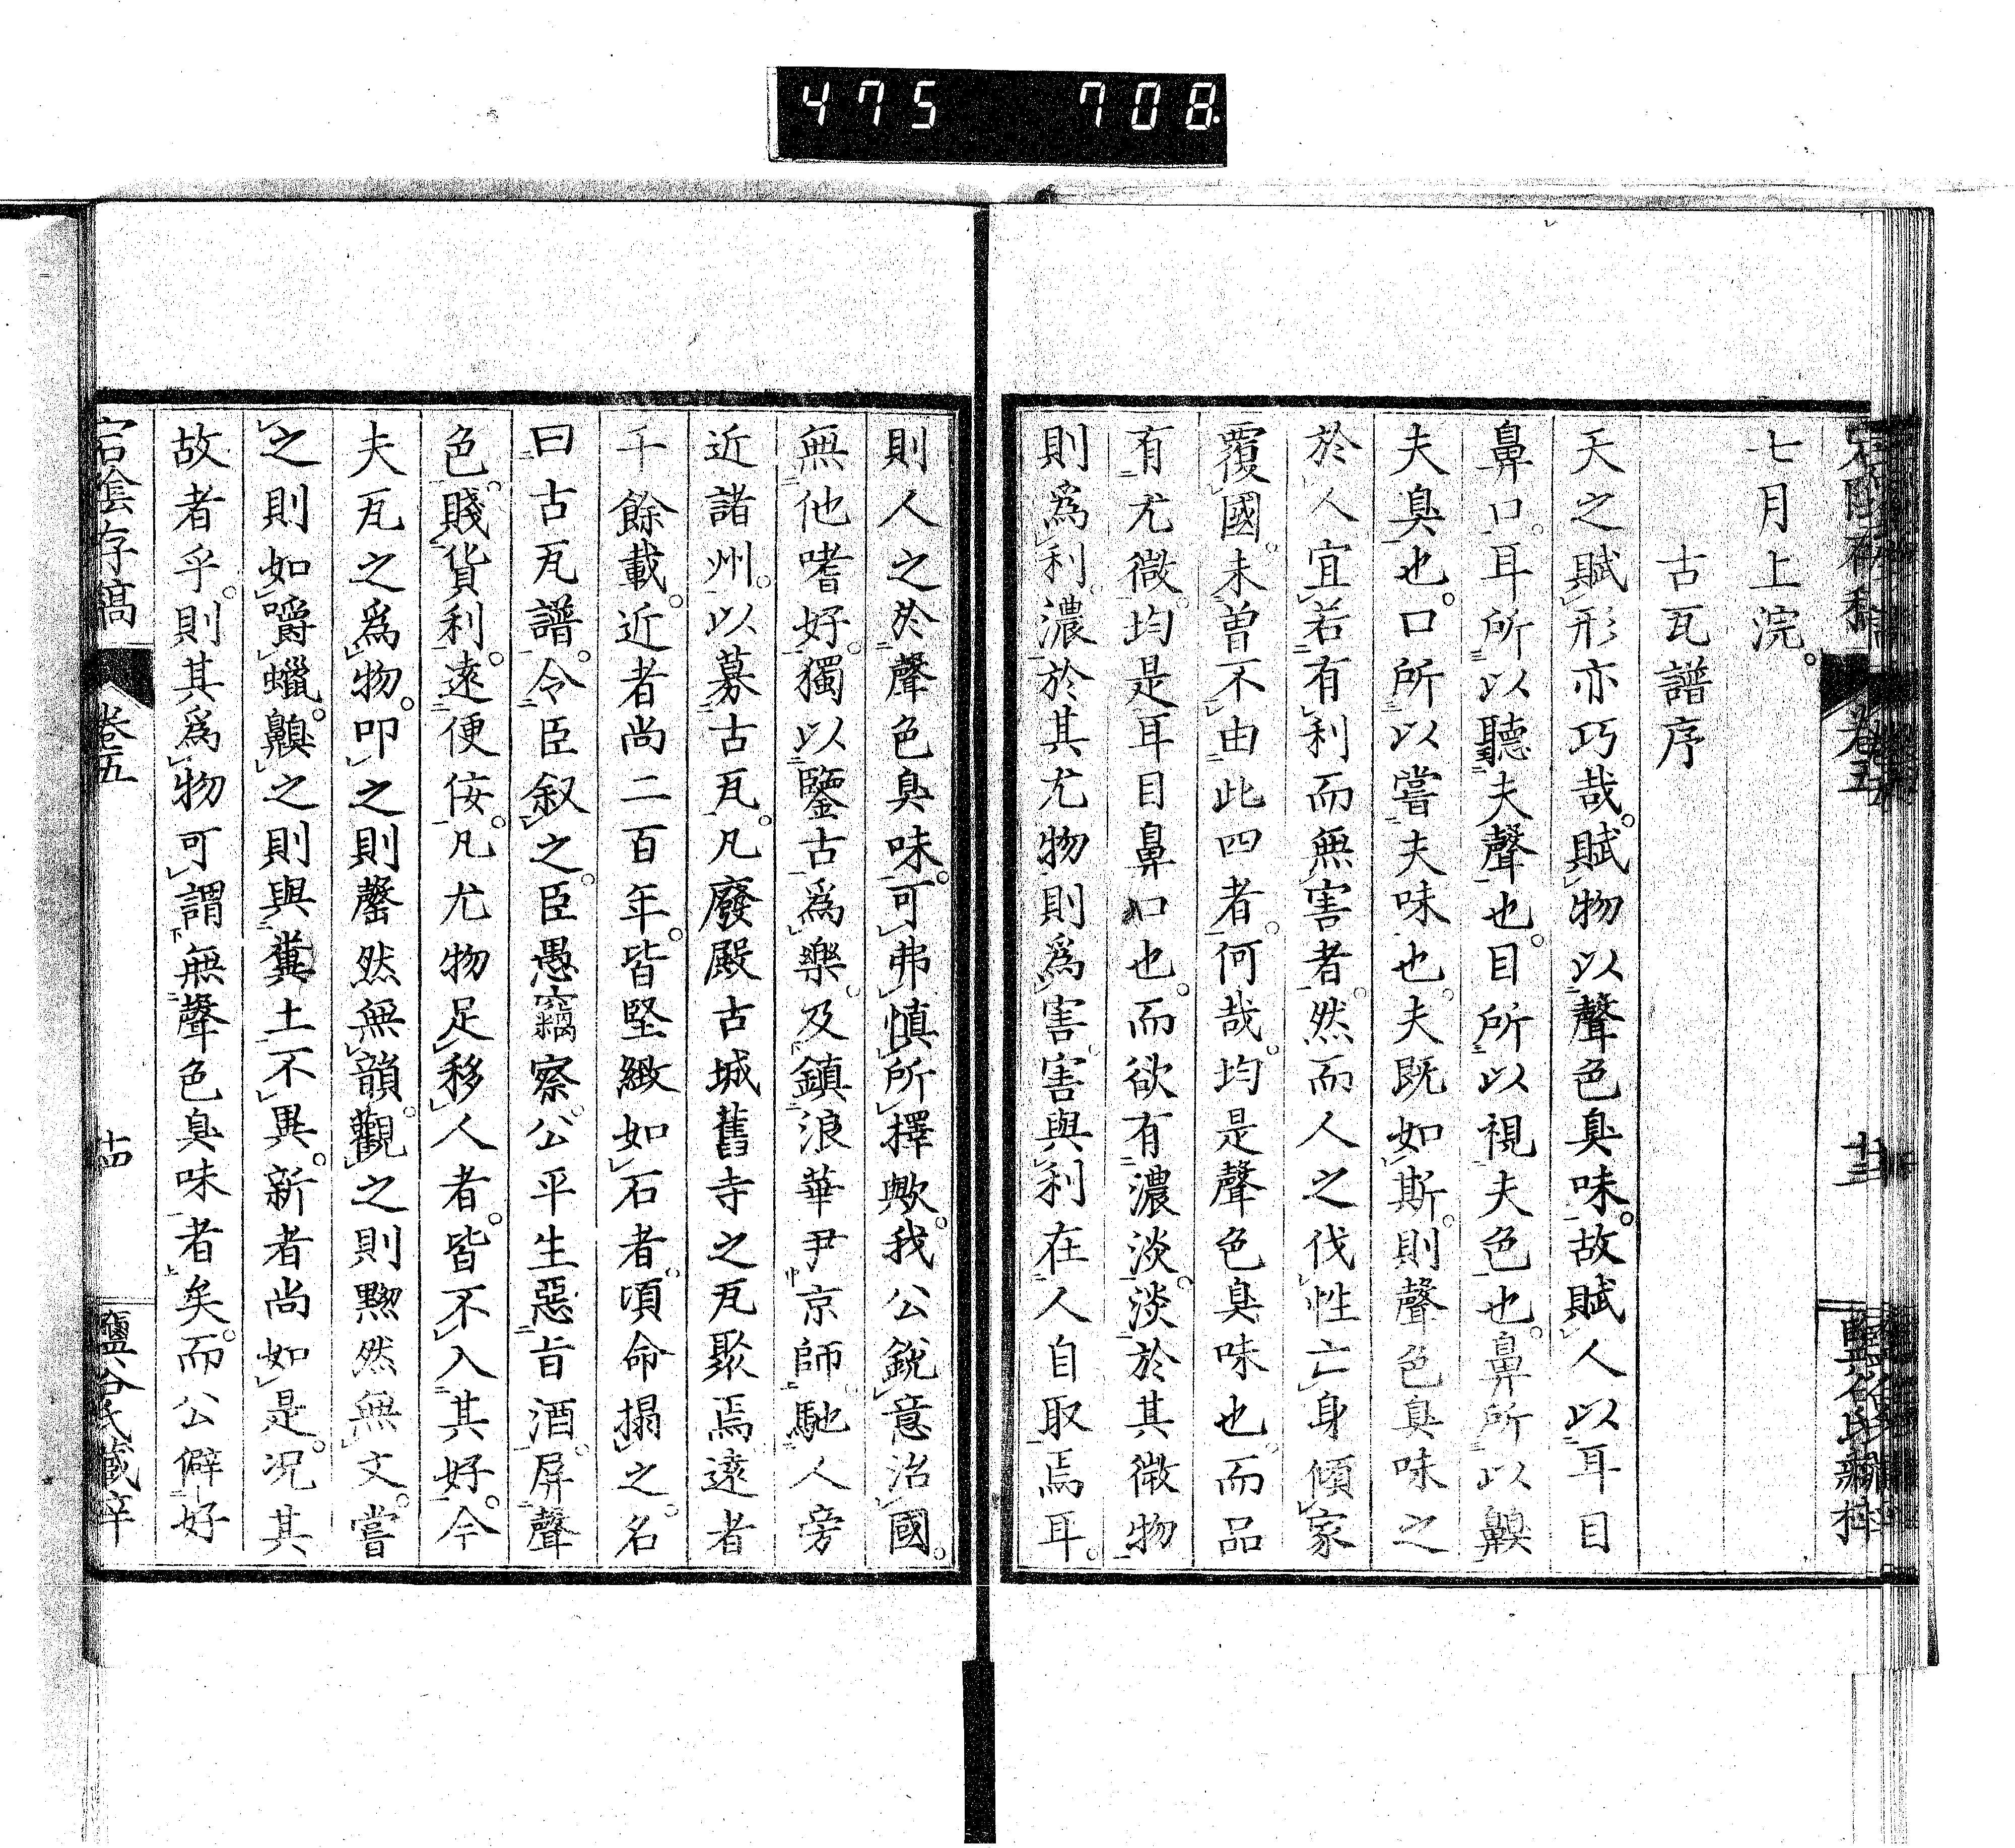 475 708
七月上浣。
古瓦譜序
天之賦形亦巧哉。賦物以聲色臭味。故賦人以耳目
鼻口。耳所以聽夫聲也。目所以視夫色也。鼻所以齅
夫臭也。口所以嘗夫味也。夫既如斯。則聲色臭味之
於人宜若有利而無害者。然而人之伐性亡身傾家
覆國。未曾不由此四者。何哉。均是聲色臭味也。而品
有尤微。均是耳目鼻口也。而欲有濃淡。淡於其微物
則爲利。濃於其尤物則爲害。害與利在人自取焉耳。
則人之於聲色臭味。可弗慎所擇歟。我公銳意治國。
無他嗜好。獨以鑒古爲樂。及鎮浪華尹京師。馳人旁
近諸州。以募古瓦。凡廢殿古城舊寺之瓦聚焉遠者
千餘載。近者尚二百年。皆堅緻如石者。頃命搨之。名
曰古瓦譜。令臣叙之。臣愚竊察公平生惡旨酒。屏聲
色。賤貨利。遠便佞。凡尤物足移人者。皆不入其好。今
夫瓦之爲物。叩之則罄然無韻。觀之則黝然無文。嘗
之則如嚼蠟。齅之則與糞土不異。新者尚如是。况其
故者乎。則其爲物可謂無聲色臭味者矣。而公僻好
宕陰存稿 卷五 十四 鹽谷氏藏梓